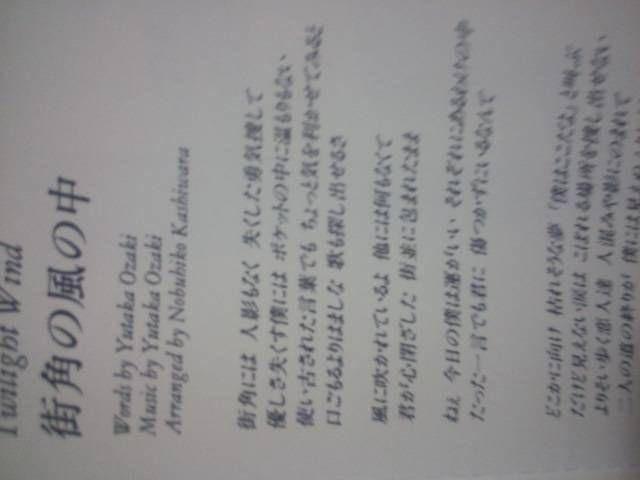 Twilight Wind
街角の風の中
Words by Yutaka Ozaki
Music by Yutaka Ozaki
Arranged by Nobuhiko Kashiwara
街角には 人影もなく 失くした勇気捜して
優しさ失くす僕には ポケットの中に温もりもない
使い古された言葉でも ちょっと気を利かせてみると
口ごもるよりはましな 歌も探し出せるさ
風に吹かれているよ 他には何もなくて
君が心閉ざした 街並に包まれたまま
ねぇ 今日の僕は運がいい それぞれにあるわけの中
たった一言でも君に 傷つかずにいるなんて
どこかに向け 枯れそうな夢 「僕はここだよ」と叫ぶ
だけど見えない涙は こぼれる場所を捜し出せない
よりそい歩く恋人達 人混みや影にのまれて
二人の道の終りが 僕には見